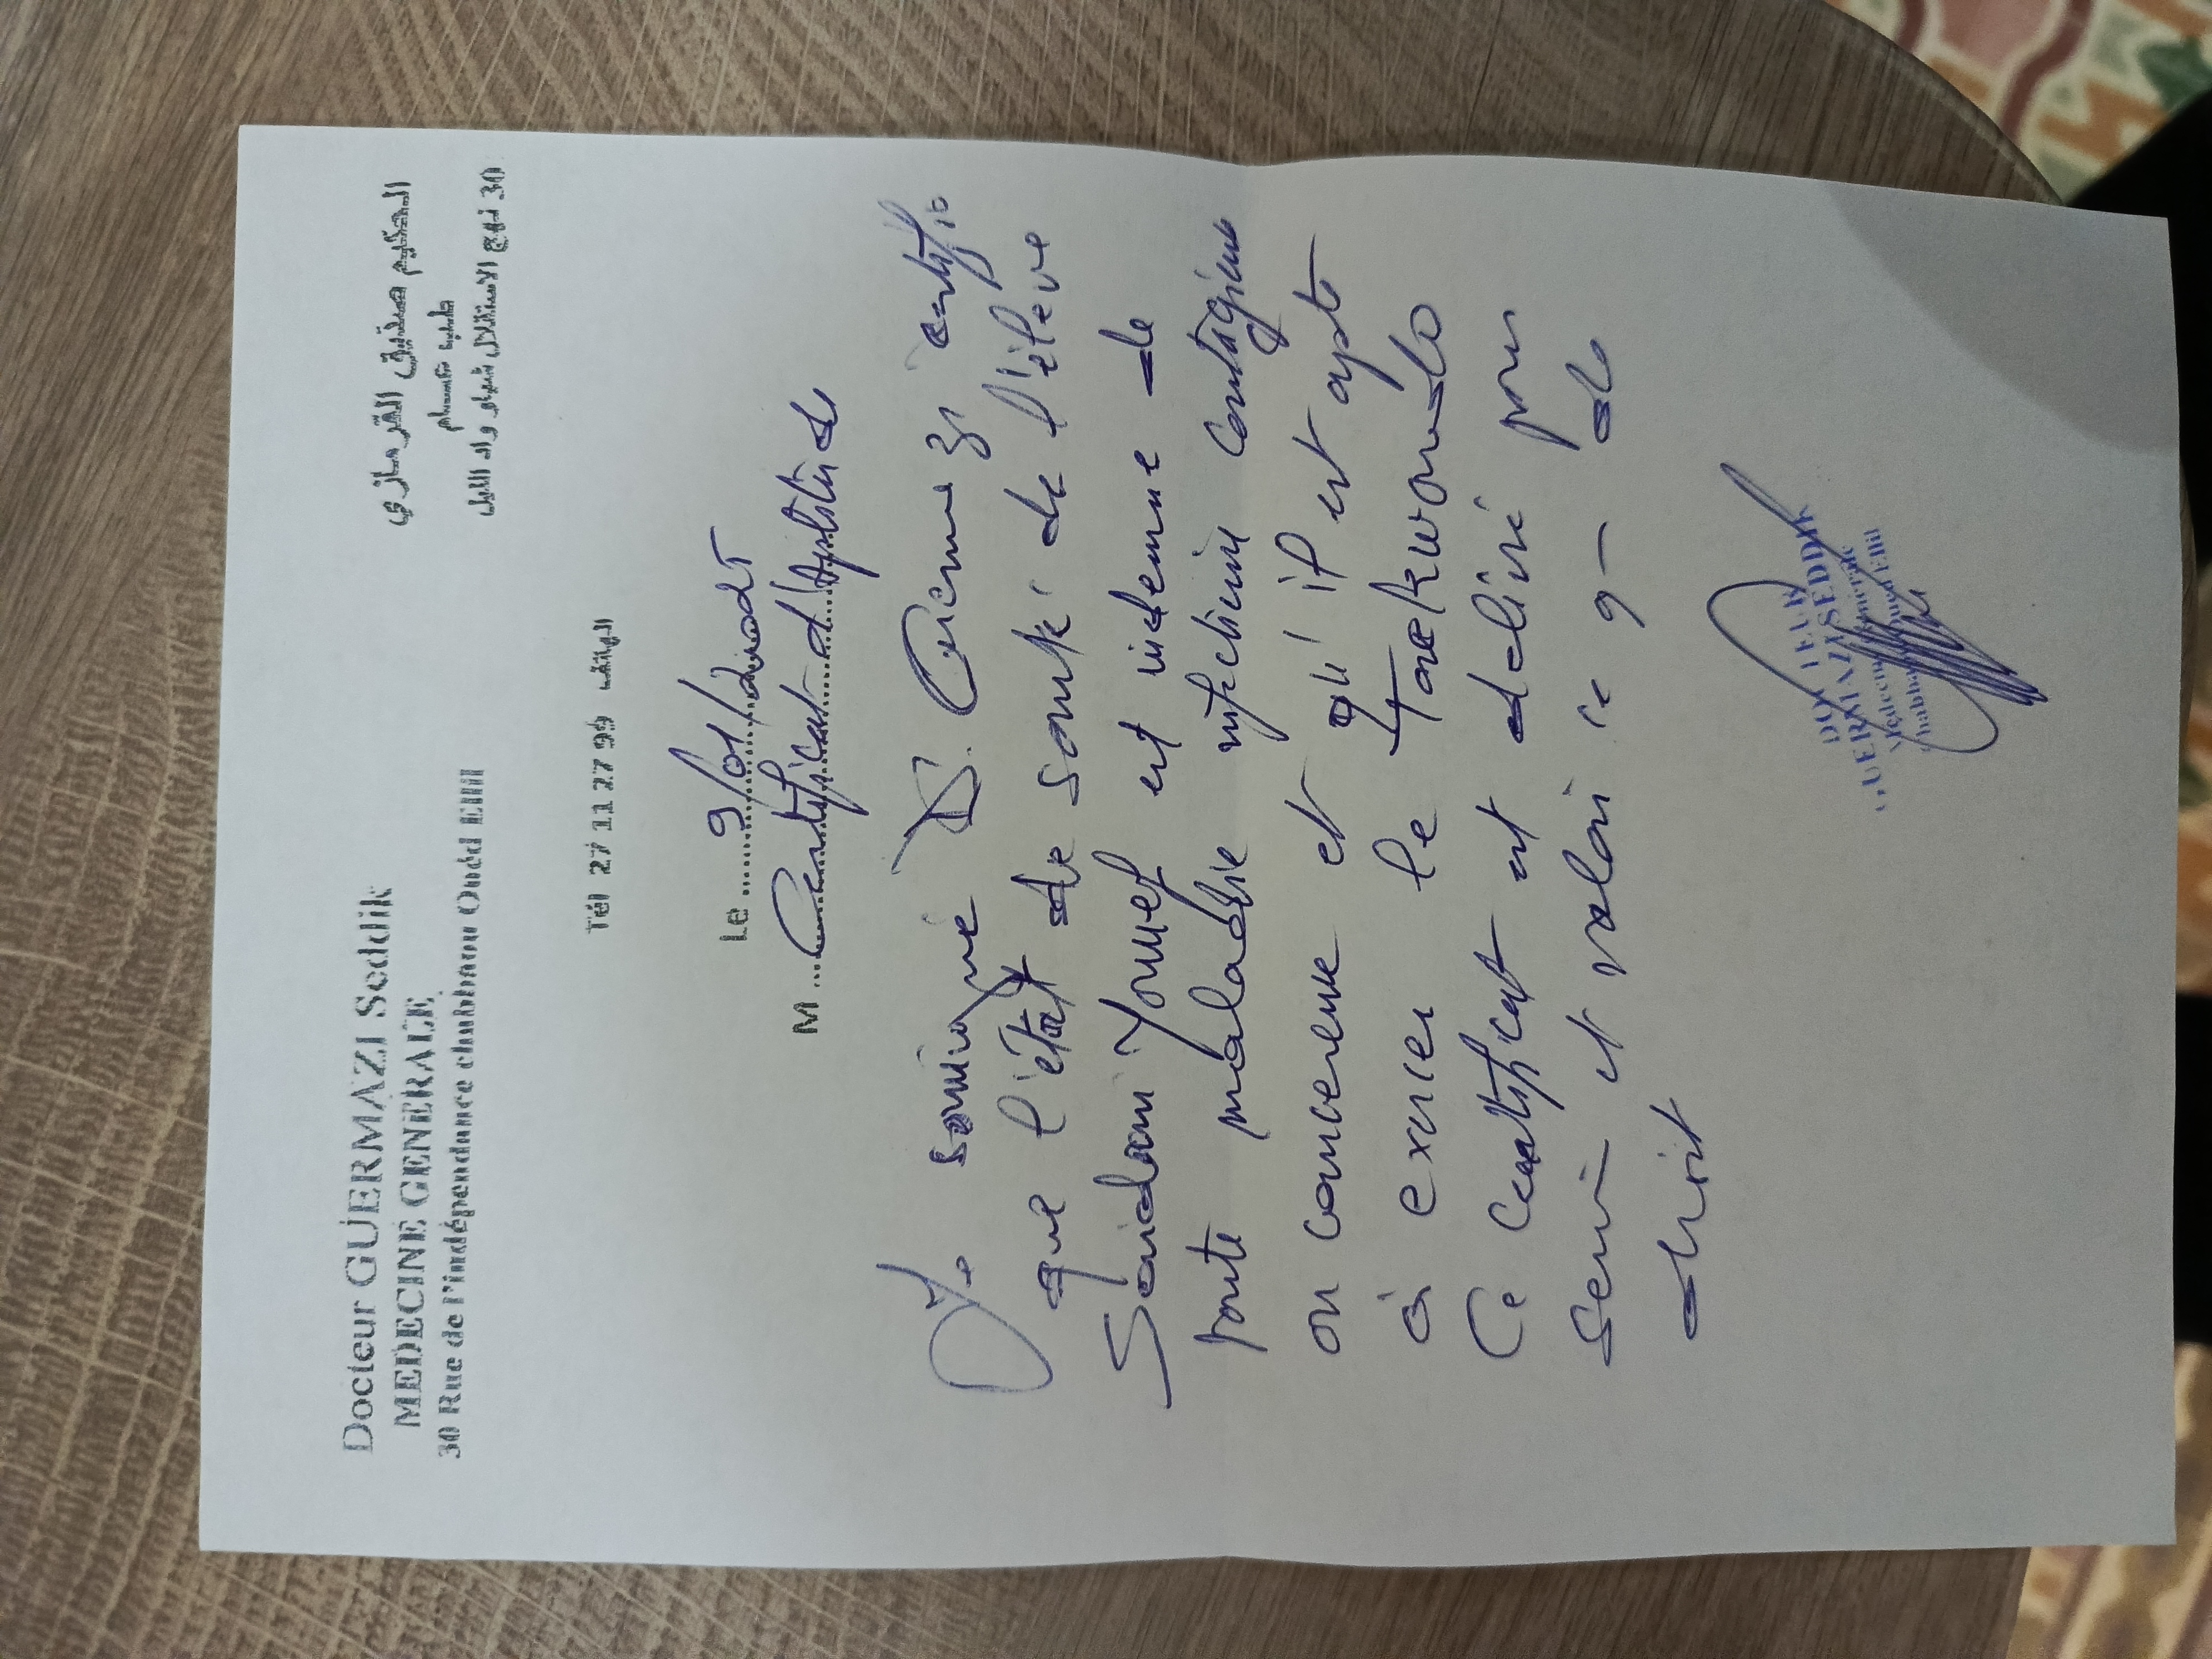 Docteur GUERMAZI Seddik
MEDECINE GENERALE
30 Rue de l'indépendance chabbaou Ouèd Ellil
الحكيم صديق القرمازي
طبيب عـــــام
30 نهج الاستقلال شباو واد الليل
Tél 27 11 27 99 الهاتف
Le 9/01/
M Certificat d'Aptitude
Je soussigné Dr certifie
que l'état de santé de l'élève
Saidani Youssef est indemne de
toute maladie infectieuse contagieuse
ou et qu'il est apte
à exercer le Taekwondo
Ce certificat est delivré pour
servir et valoir ce q- de
droit
DOCTEUR
GUERMAZI SEDDIK
Médecine Générale
Chabbaou Oued Ellil